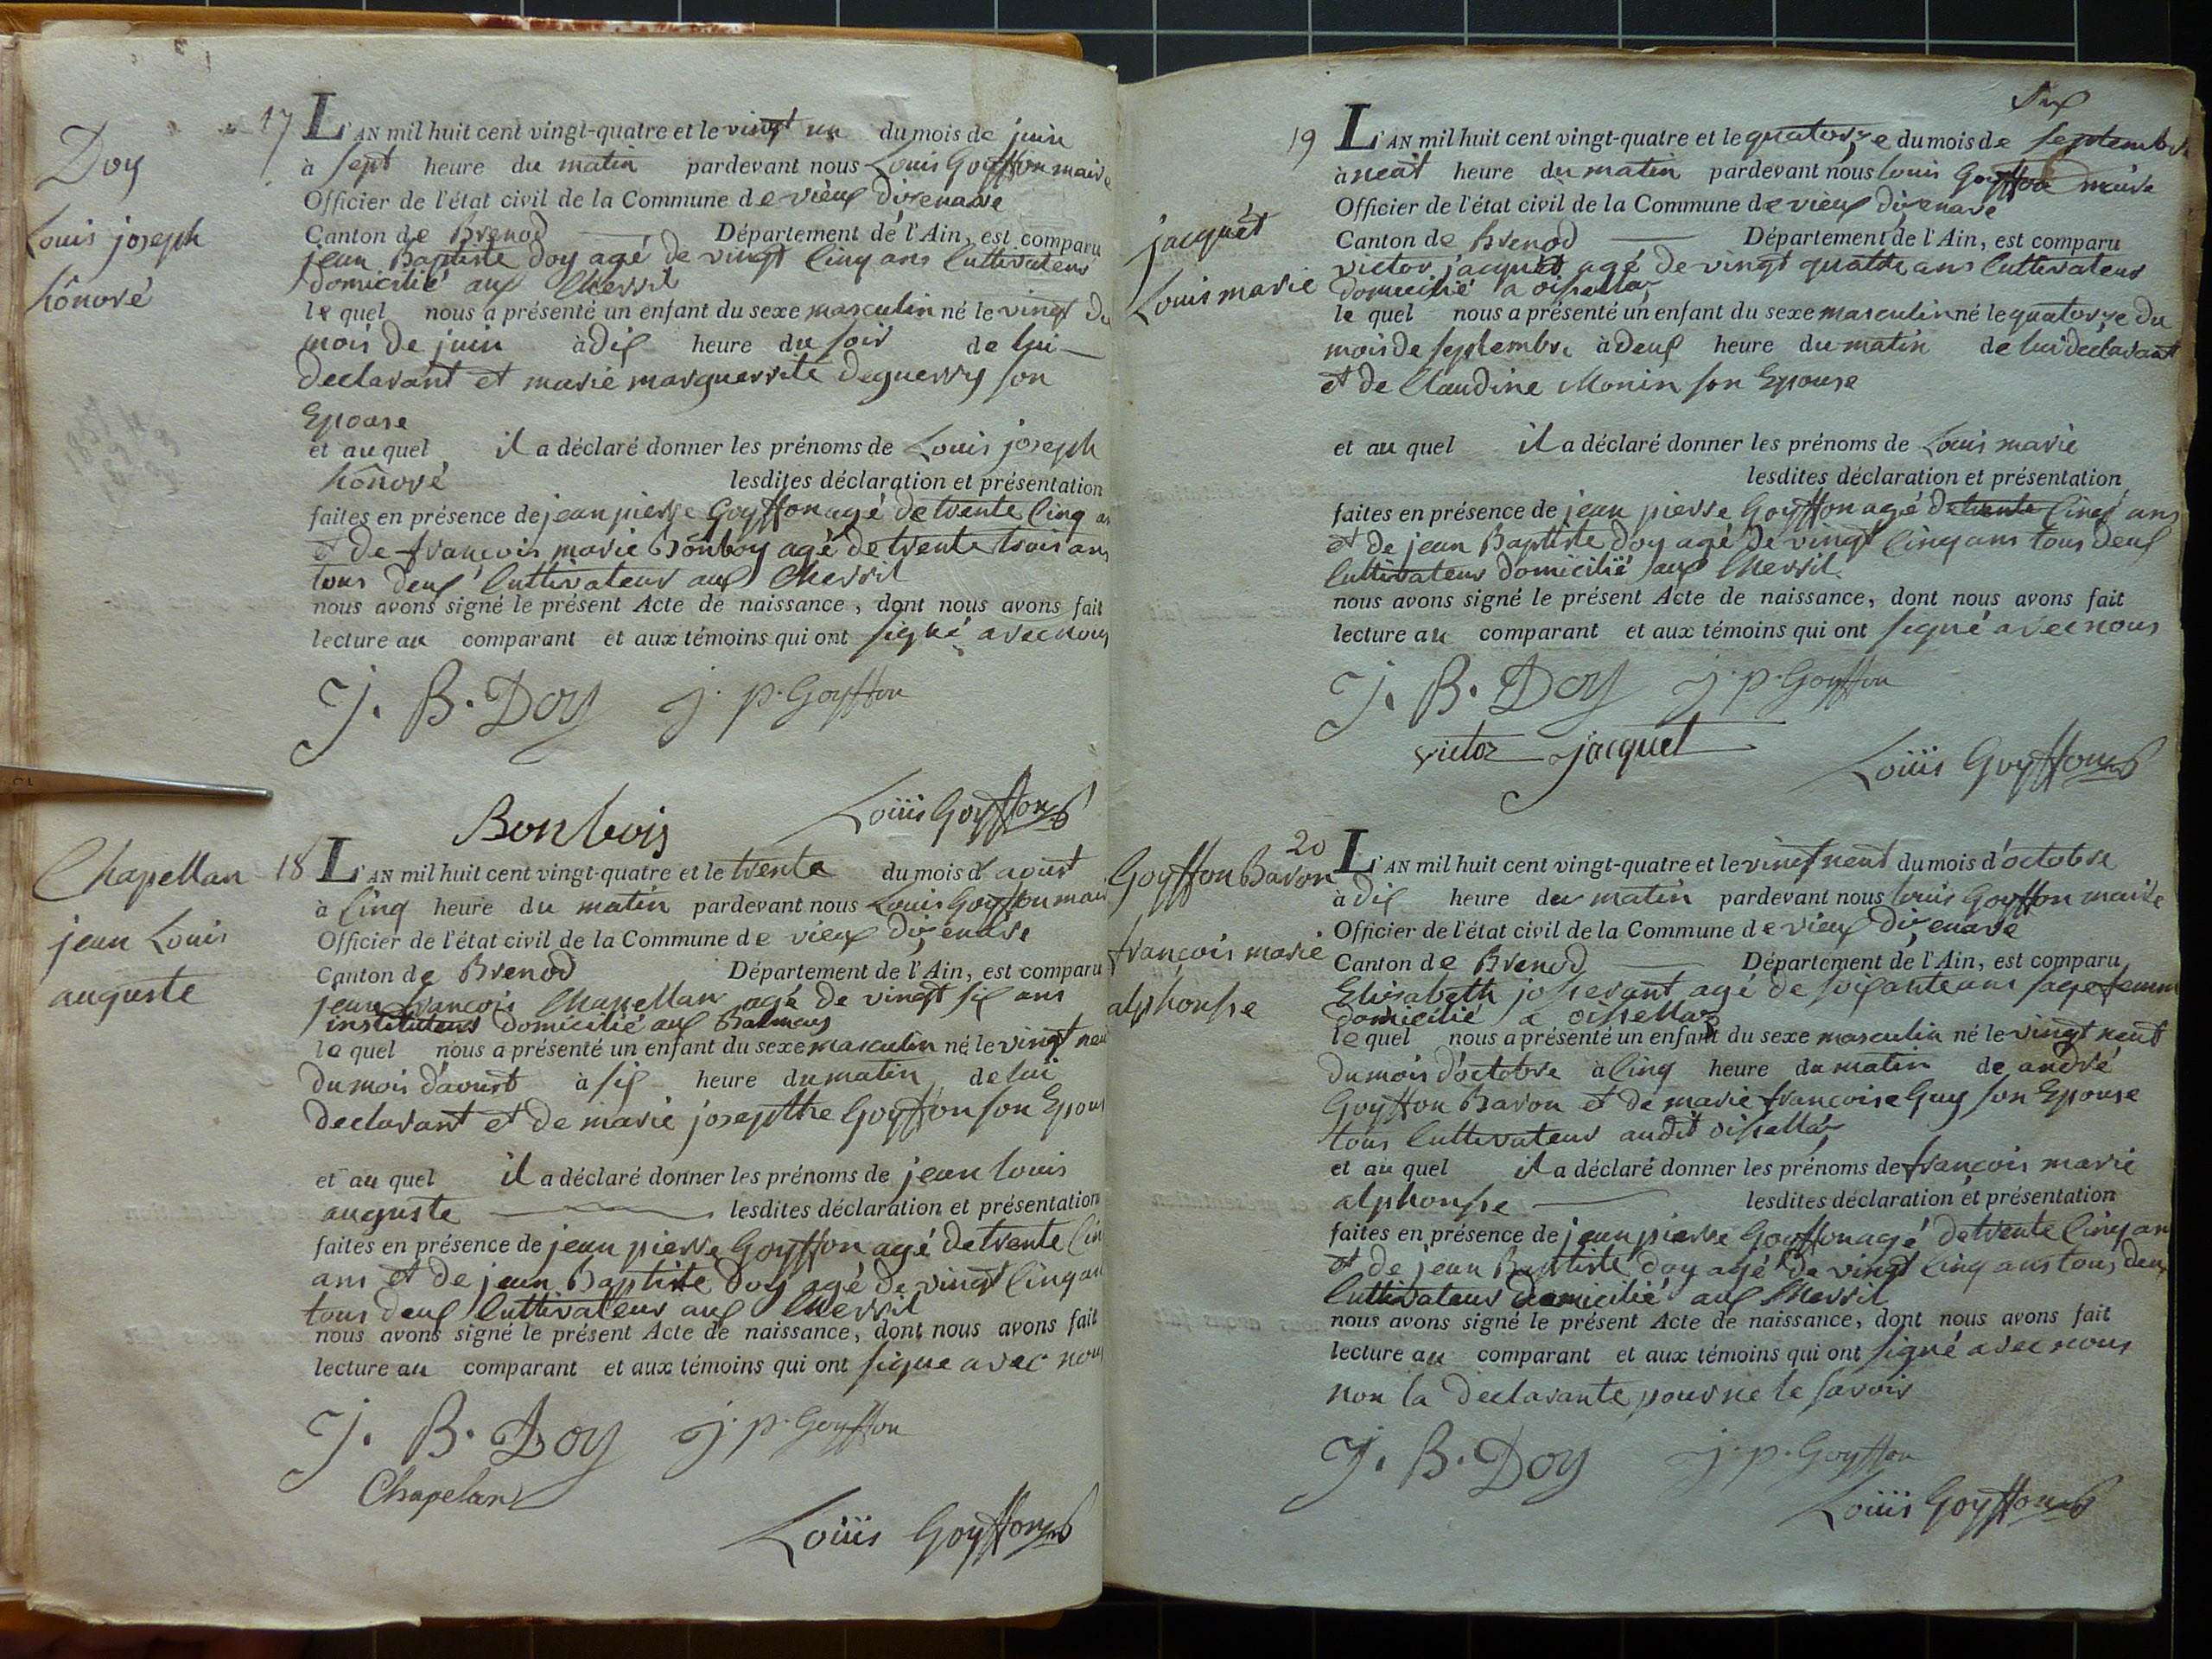 17
Doy
Louis joseph
hônoré
L'AN mil huit cent vingt-quatre et le vingt un du mois de juin
à sept heure du matin pardevant nous Louis Goyffon maire
Officier de l'état civil de la Commune de vieux dizenave
Canton de Brenod Département de l'Ain, est comparu
jean Baptiste doy agé de vingt Cinq ans Cultivateur
domicilié aux Chevril
le quel nous a présenté un enfant du sexe masculin né le vingt du
mois de juin à dix heure du soir de lui
declarant et marie marguerrite deguerry son
Epouse
et au quel il a déclaré donner les prénoms de Louis joseph
hônoré lesdites déclaration et présentation
faites en présence de jean pierre Goyffon agé de trente Cinq an
et de françois marie Bonboy agé de trente trois ans
tous deux Cultivateur aux Chevril
nous avons signé le présent Acte de naissance, dont nous avons fait
lecture au comparant et aux témoins qui ont signé avec nous
J. B. Doy j. p. Goyffon
Bonbois Loüis Goyffon
18
Chapellan
jean Louis
auguste
L'AN mil huit cent vingt-quatre et le trente du mois d'aoust
à Cinq heure du matin pardevant nous Louis Goyffon mai
Officier de l'état civil de la Commune de vieux dizenave
Canton de Brenod Département de l'Ain, est comparu
jean francois Chapellan agé de vingt six ans
instituteur domicilié aux Balmay
le quel nous a présenté un enfant du sexe masculin né le vingt neu
du mois d'aoust à six heure du matin de lui
declarant et de marie josepthe Goyffon son Epous
et au quel il a déclaré donner les prénoms de jean Louis
auguste lesdites déclaration et présentation
faites en présence de jean pierre Goyffon agé de trente Cin
ans et de jean Baptiste doy agé de vingt Cinq an
tous deux Cultivateur aux Chevril
nous avons signé le présent Acte de naissance, dont nous avons fait
lecture au comparant et aux témoins qui ont signe avec nous
J. B. Doy j. p. Goyffon
Chapelan
Loüis Goyffon
19
jacquet
Louis marie
L'AN mil huit cent vingt-quatre et le quatorze du mois de septembre
à neuf heure du matin pardevant nous louis Goyffon maire
Officier de l'état civil de la Commune de vieux dizenave
Canton de Brenod Département de l'Ain, est comparu
victor jacquet agé de vingt quattre ans Cultivateur
domicilié a oissellaz
le quel nous a présenté un enfant du sexe masculin né le quatorze du
mois de septembre à deux heure du matin de lui declarant
et de Claudine Monin son Epouse
et au quel il a déclaré donner les prénoms de Louis marie
lesdites déclaration et présentation
faites en présence de jean pierre Goyffon agé de trente Cinq ans
et de jean Baptiste doy agé de vingt Cinq ans tous deux
Cultivateur domicilié aux Chevril
nous avons signé le présent Acte de naissance, dont nous avons fait
lecture au comparant et aux témoins qui ont signé avec nous
J. B. Doy j. p. Goyffon
victor jacquet
Loüis Goyffon
20
Goyffon Baron
francois marie
alphonsse
L'AN mil huit cent vingt-quatre et le vingt neuf du mois d'octobre
à dix heure du matin pardevant nous louis Goyffon maire
Officier de l'état civil de la Commune de vieux dizenave
Canton de Brenod Département de l'Ain, est comparu
Elisabeth josserant agé de soixante ans sage femm
domicilié a oissellaz
le quel nous a présenté un enfant du sexe masculin né le vingt neuf
du mois d'octobre à Cinq heure du matin de andré
Goyffon Baron et de marie francoise Guy son Epouse
tous Cultivateur audit oissellaz
et au quel il a déclaré donner les prénoms de francois marie
alphonsse lesdites déclaration et présentation
faites en présence de jean pierre Goyffon agé de trente Cinq an
et de jean Baptiste doy agé de vingt Cinq ans tous deux
Cultivateur domicilié aux Chevril
nous avons signé le présent Acte de naissance, dont nous avons fait
lecture au comparant et aux témoins qui ont signé avec nous
non la declarante pour ne le savoir
J. B. Doy j. p. Goyffon
Loüis Goyffon